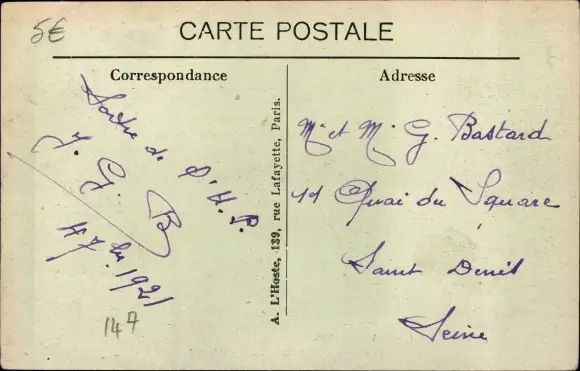 5€
CARTE POSTALE
Correspondance
Adresse
Sortie de l'H.P.
J. G. B
1921
147
A. L'Hoste, 139, rue Lafayette, Paris.
Mr et Me G. Bastard
11 Quai du Square
Saint Denis
Seine